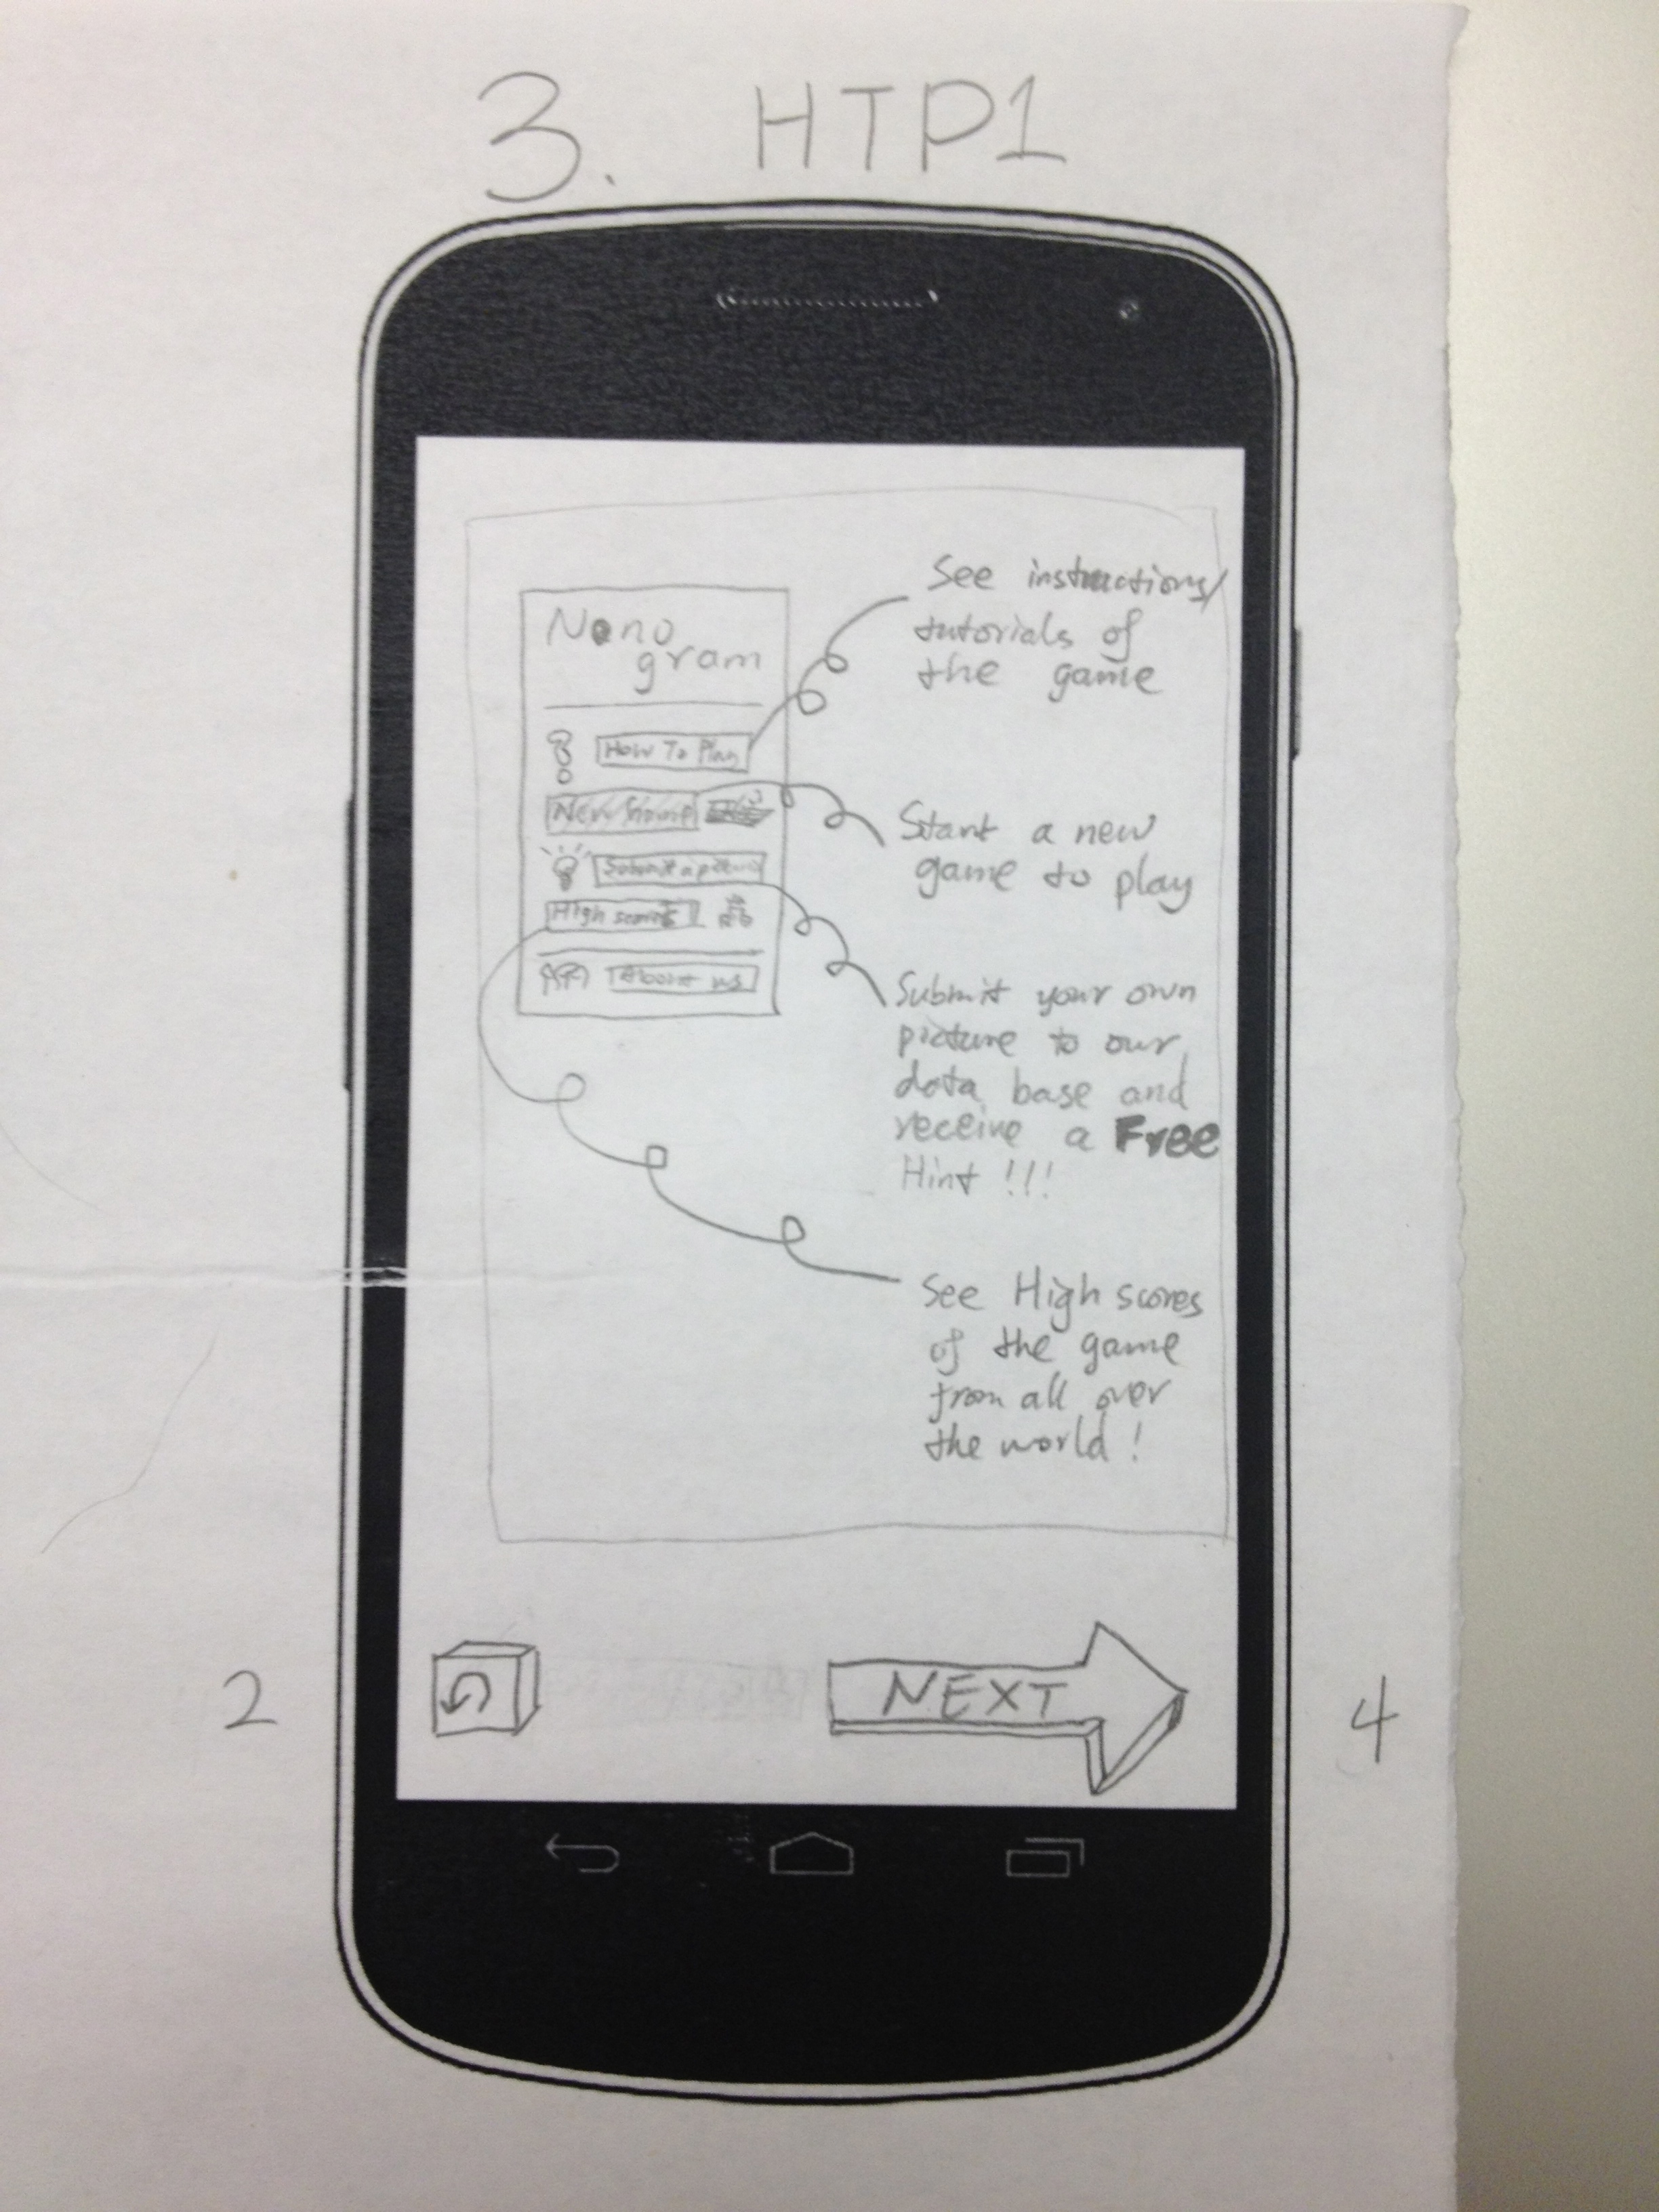 3. HTP1
Nono
gram
How To Play
New Game
Submit a picture
High scores
About us
See instructions/
tutorials of
the game
Start a new
game to play
Submit your own
picture to our
data base and
receive a Free
Hint !!!
See High scores
of the game
from all over
the world !
2
NEXT
4